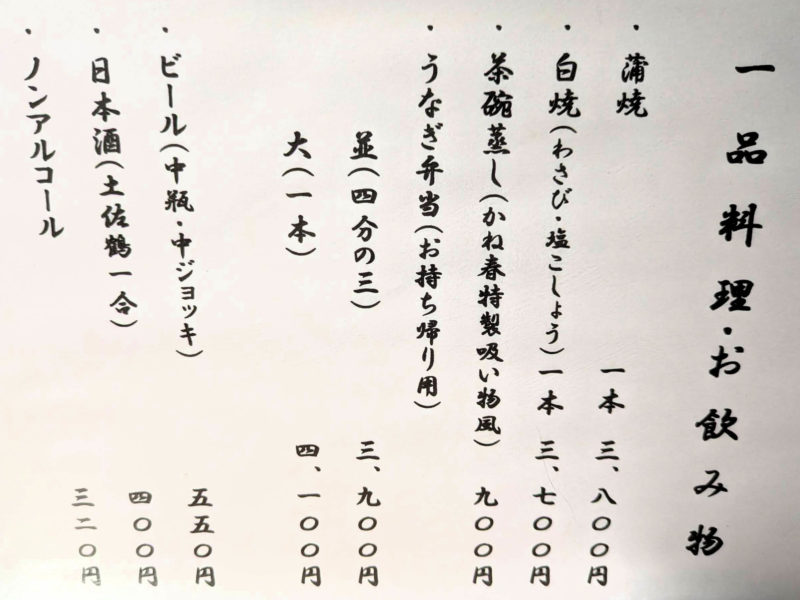 一品料理・お飲み物
・蒲焼 一本 三、八〇〇円
・白焼(わさび・塩こしょう)一本 三、七〇〇円
・茶碗蒸し(かね春特製吸い物風) 九〇〇円
・うなぎ弁当(お持ち帰り用)
並(四分の三) 三、九〇〇円
大(一本) 四、一〇〇円
・ビール(中瓶・中ジョッキ) 五五〇円
・日本酒(土佐鶴一合) 四〇〇円
・ノンアルコール 三二〇円